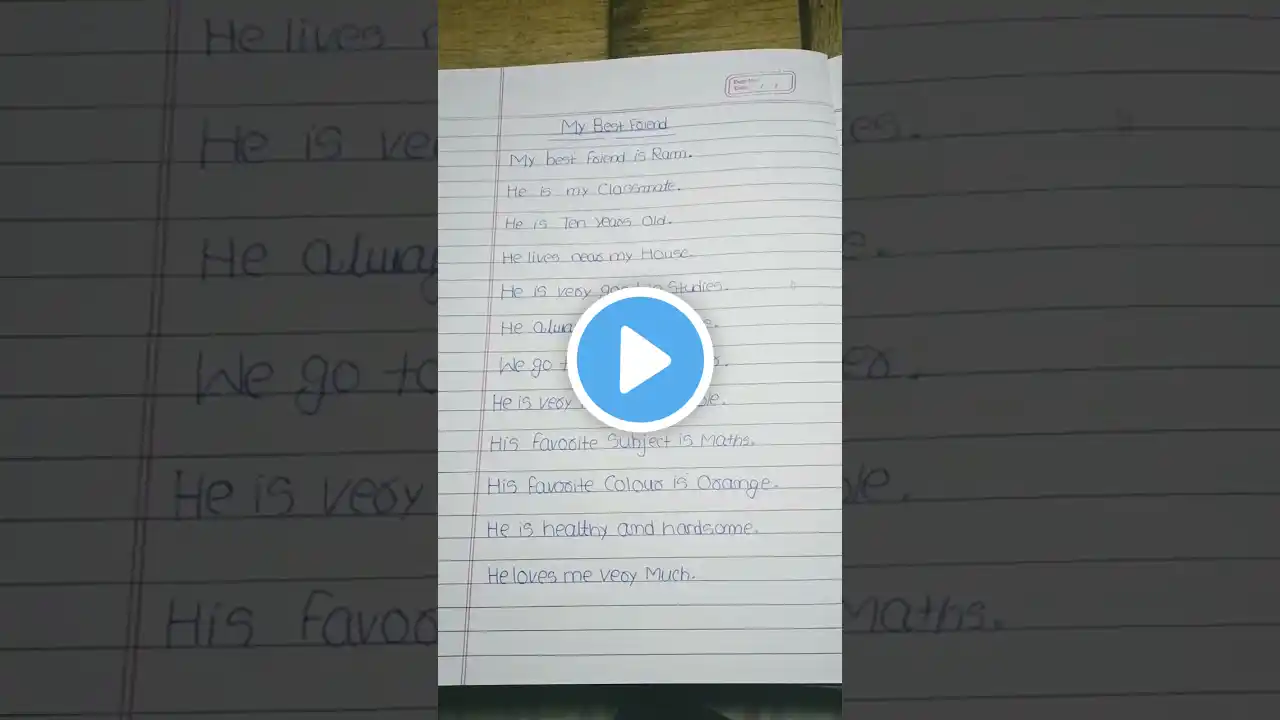 My Best Friend
My best friend is Ram.
He is my Classmate.
He is Ten years Old.
He lives near my House.
He is very good in Studies.
He
We go
He is very
His favorite Subject is Maths.
His favorite Colour is Orange.
He is healthy and handsome.
He loves me very Much.